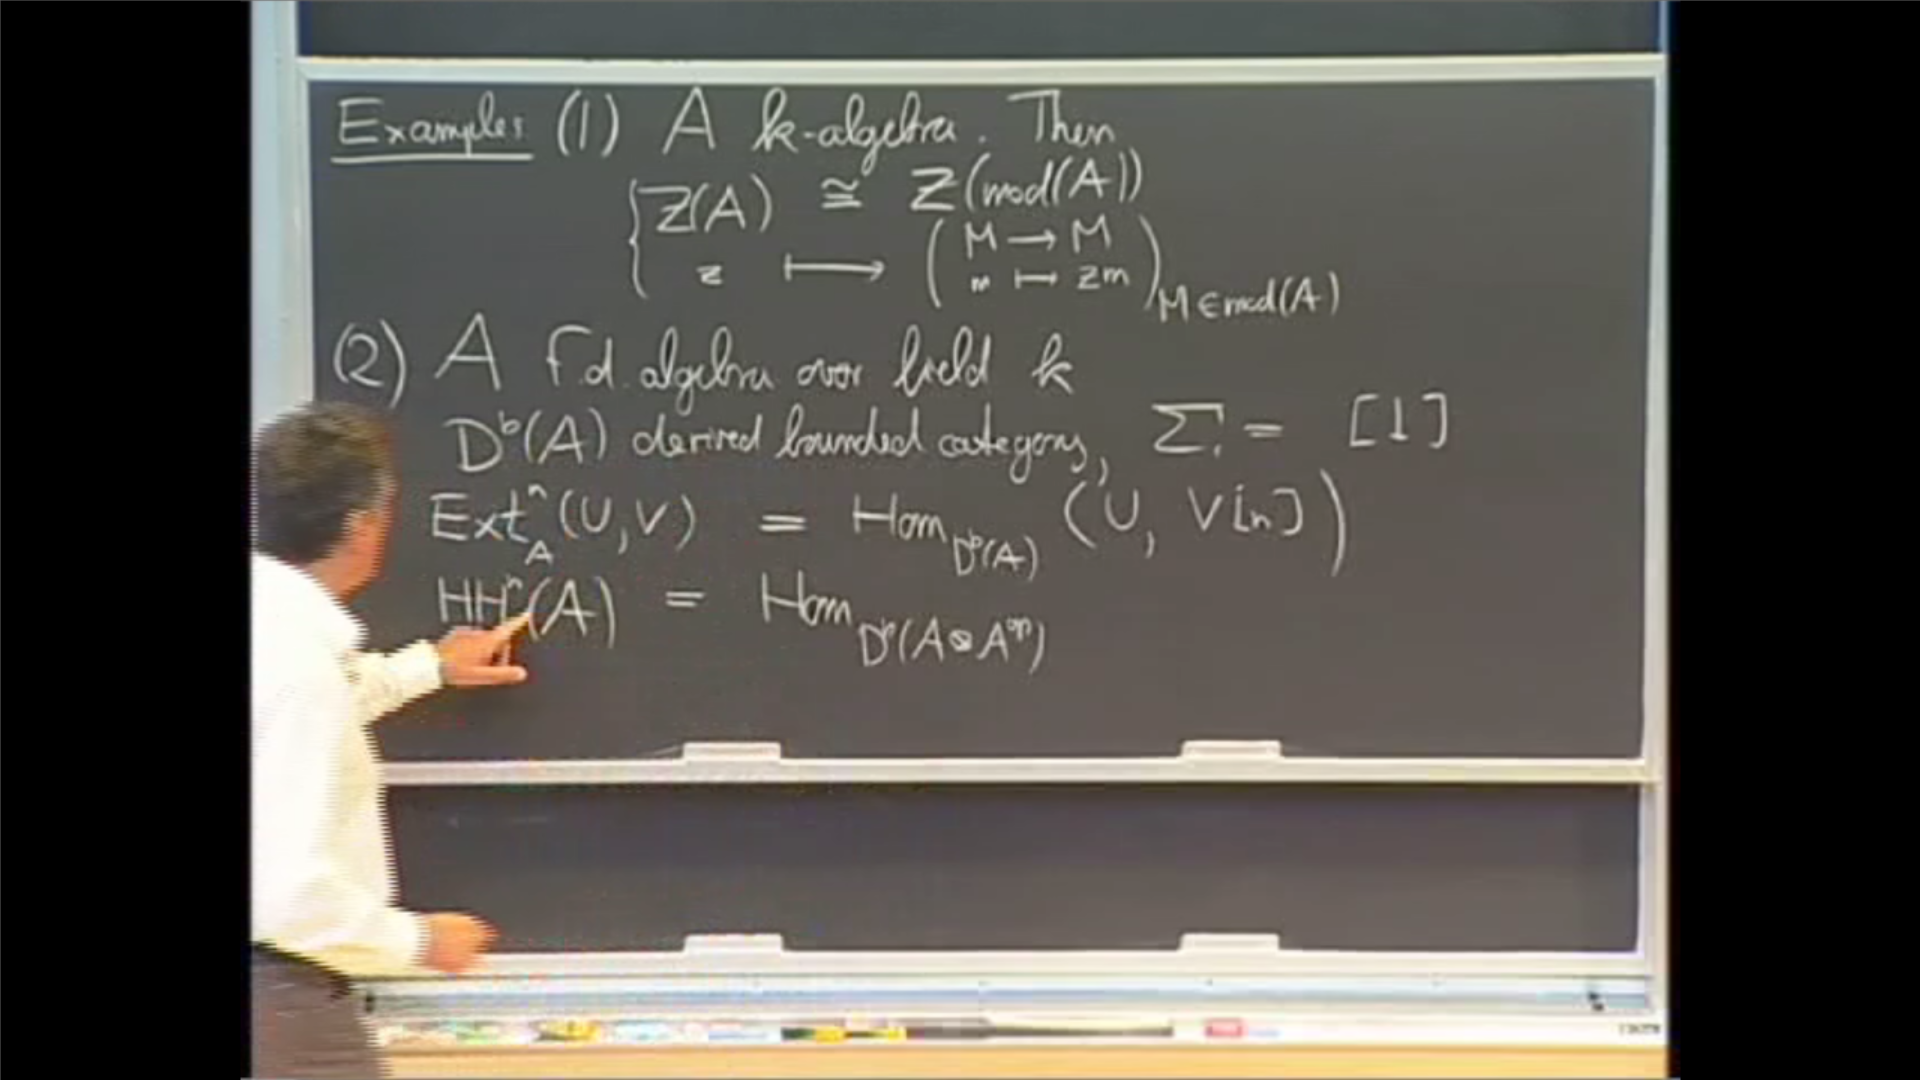 Examples (1) A k-algebra. Then
Z(A) ≅ Z(mod(A))
z ⟼ ( M → M
m ↦ zm ) M ∈ mod(A)
(2) A f.d. algebra over field k
Dᵇ(A) derived bounded category, Σ = [1]
Extⁿ_A(U,V) = Hom_{Dᵇ(A)} (U, V[n])
HHⁿ(A) = Hom_{Dᵇ(A⊗Aᵒᵖ)}